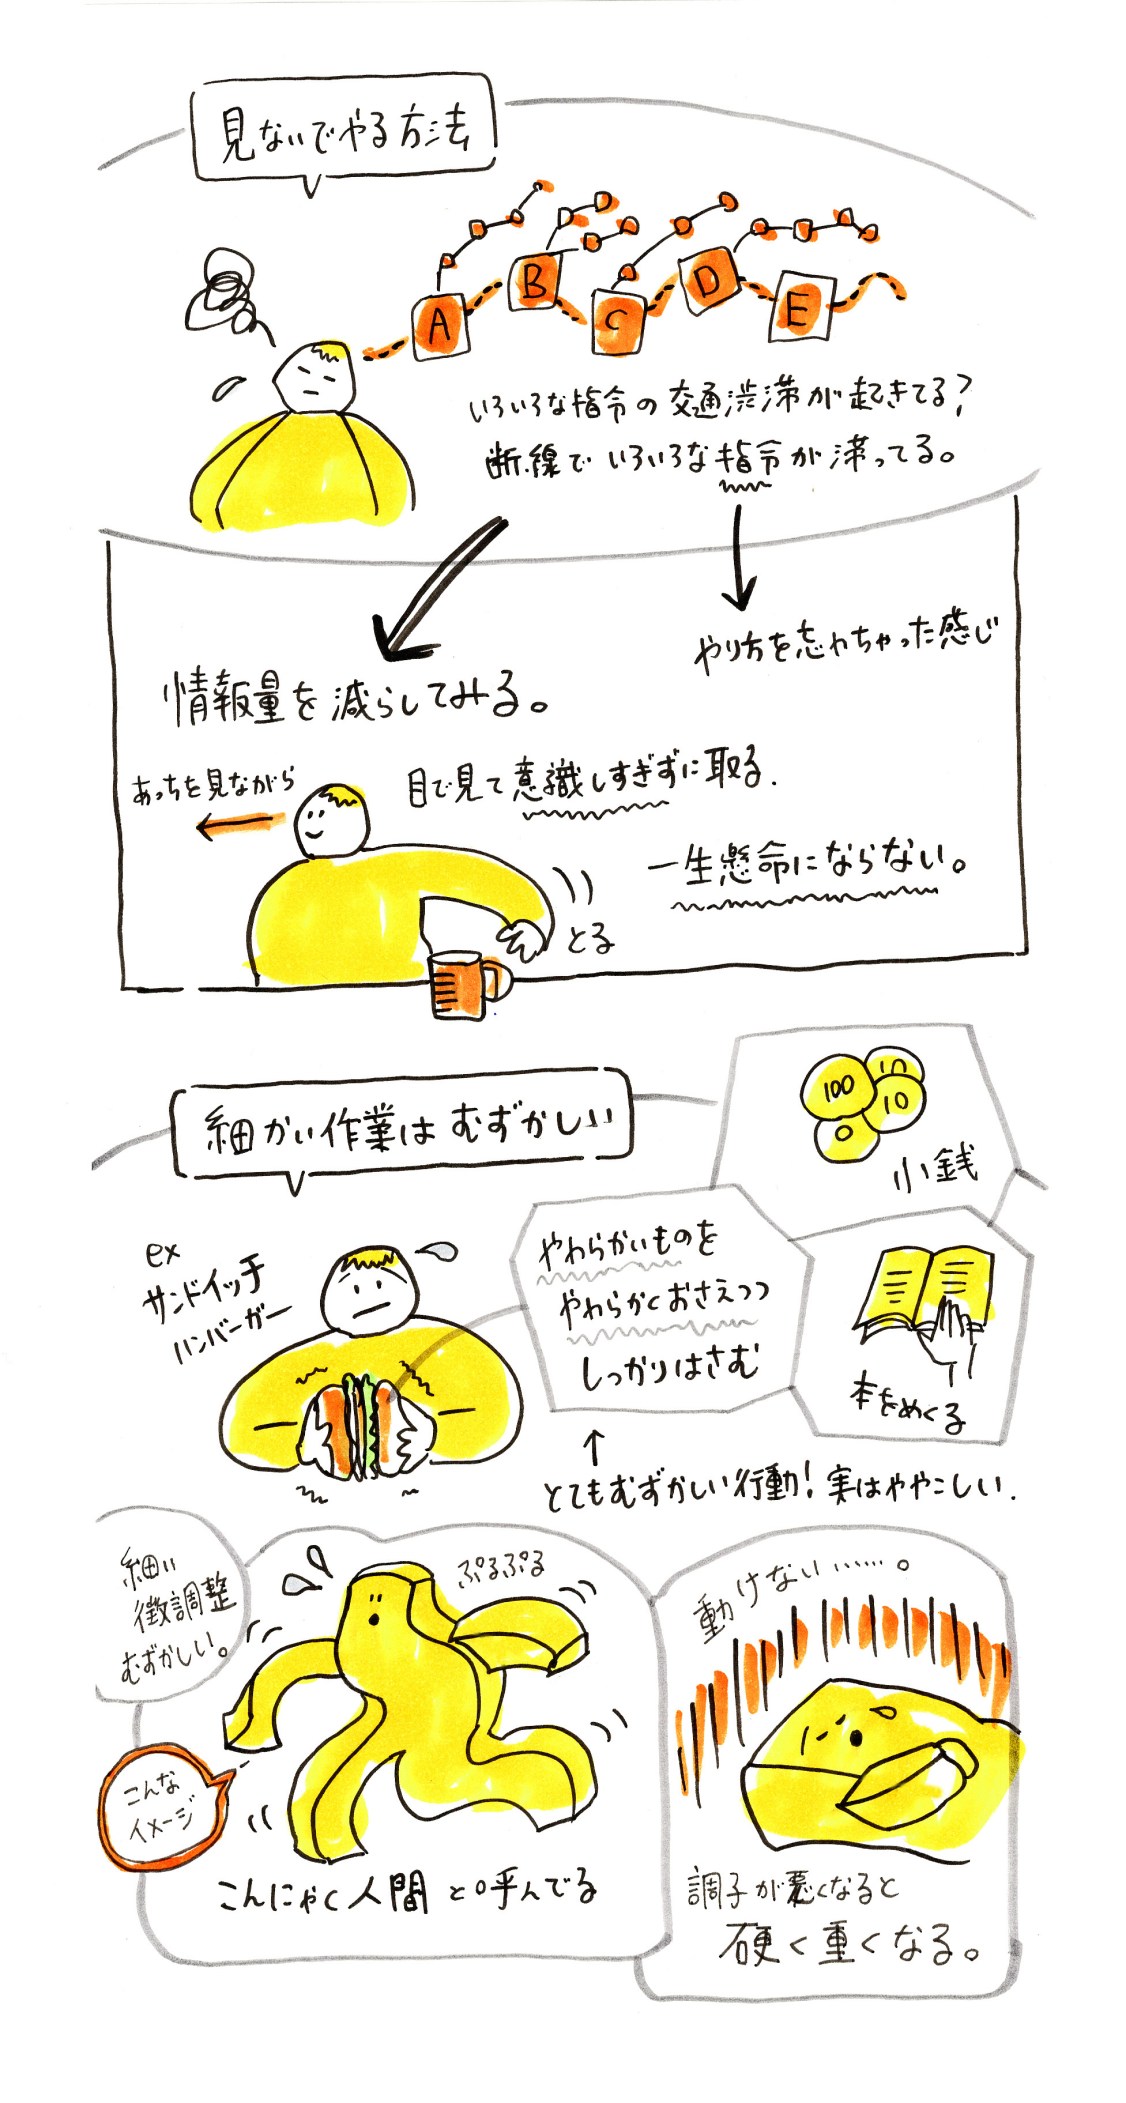 見ないでやる方法
A
B
C
D
E
いろいろな指令の交通渋滞が起きてる?
断線でいろいろな指令が滞ってる。
やり方を忘れちゃった感じ
情報量を減らしてみる。
あっちを見ながら
目で見て意識しすぎずに取る.
一生懸命にならない。
とる
細かい作業はむずかしい
100
10
10
0
小銭
ex
サンドイッチ
ハンバーガー
やわらかいものを
やわらかくおさえつつ
しっかりはさむ
本をめくる
とてもむずかしい行動!実はややこしい.
細い
微調整
むずかしい。
ぷるぷる
こんな
イメージ
こんにゃく人間と呼んでる
動けない……。
調子が悪くなると
硬く重くなる。